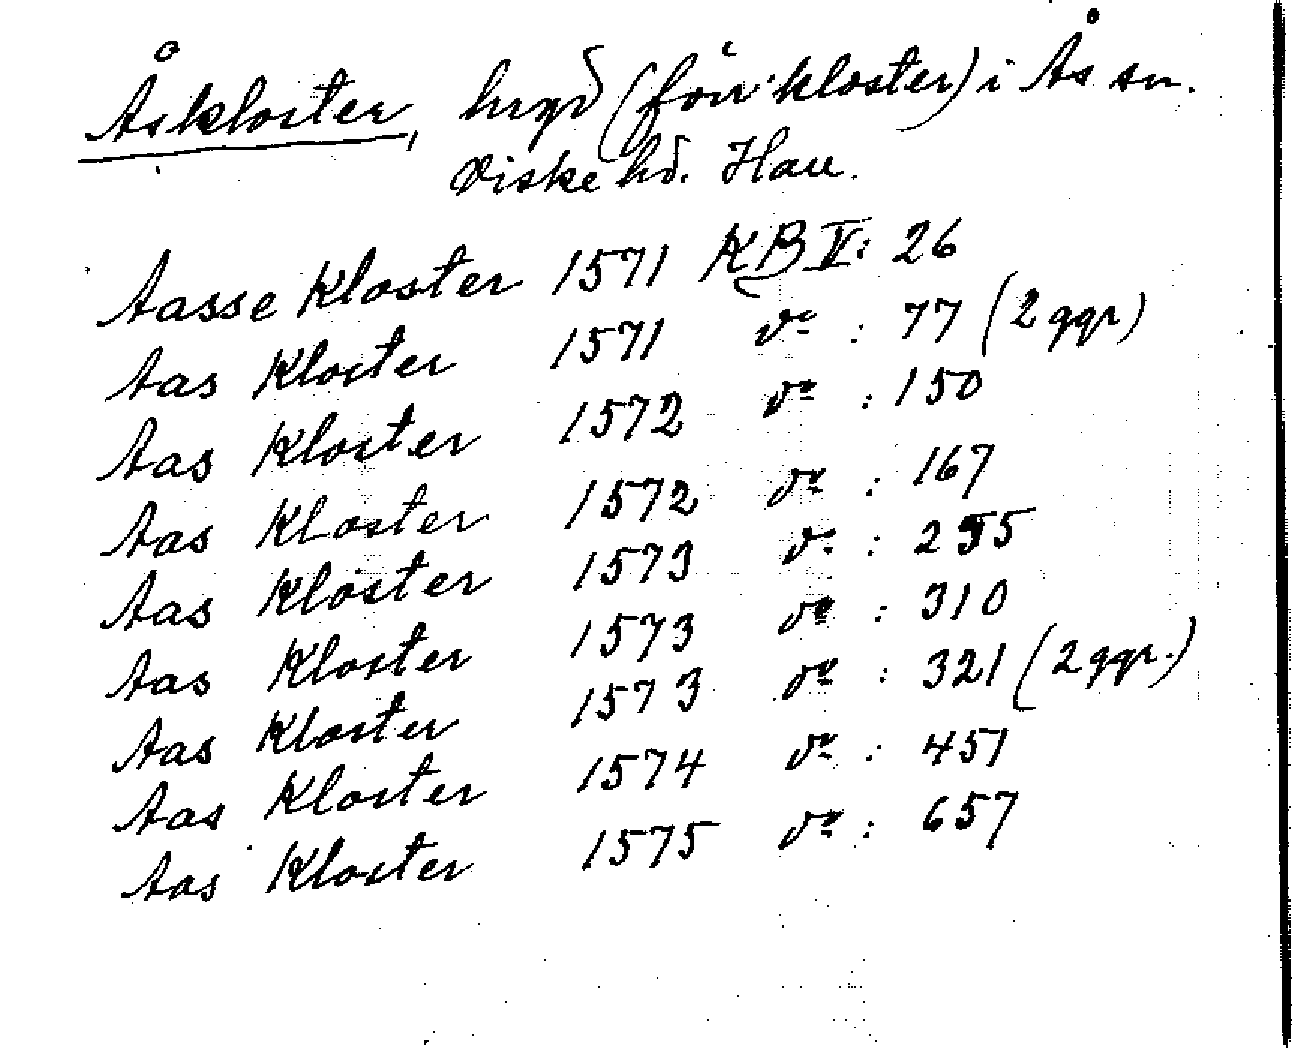 Åskloster, hrgd (förr kloster) i Ås sn.
Viske hd. Hall.
Aasse Kloster 1571 KB V: 26
Aas Kloster 1571 do : 77 (2 ggr)
Aas Kloster 1572 do : 150
Aas Kloster 1572 do : 167
Aas Kloster 1573 do : 255
Aas Kloster 1573 do : 310
Aas Kloster 1573 do : 321 (2 ggr.)
Aas Kloster 1574 do : 451
Aas Kloster 1575 do : 657